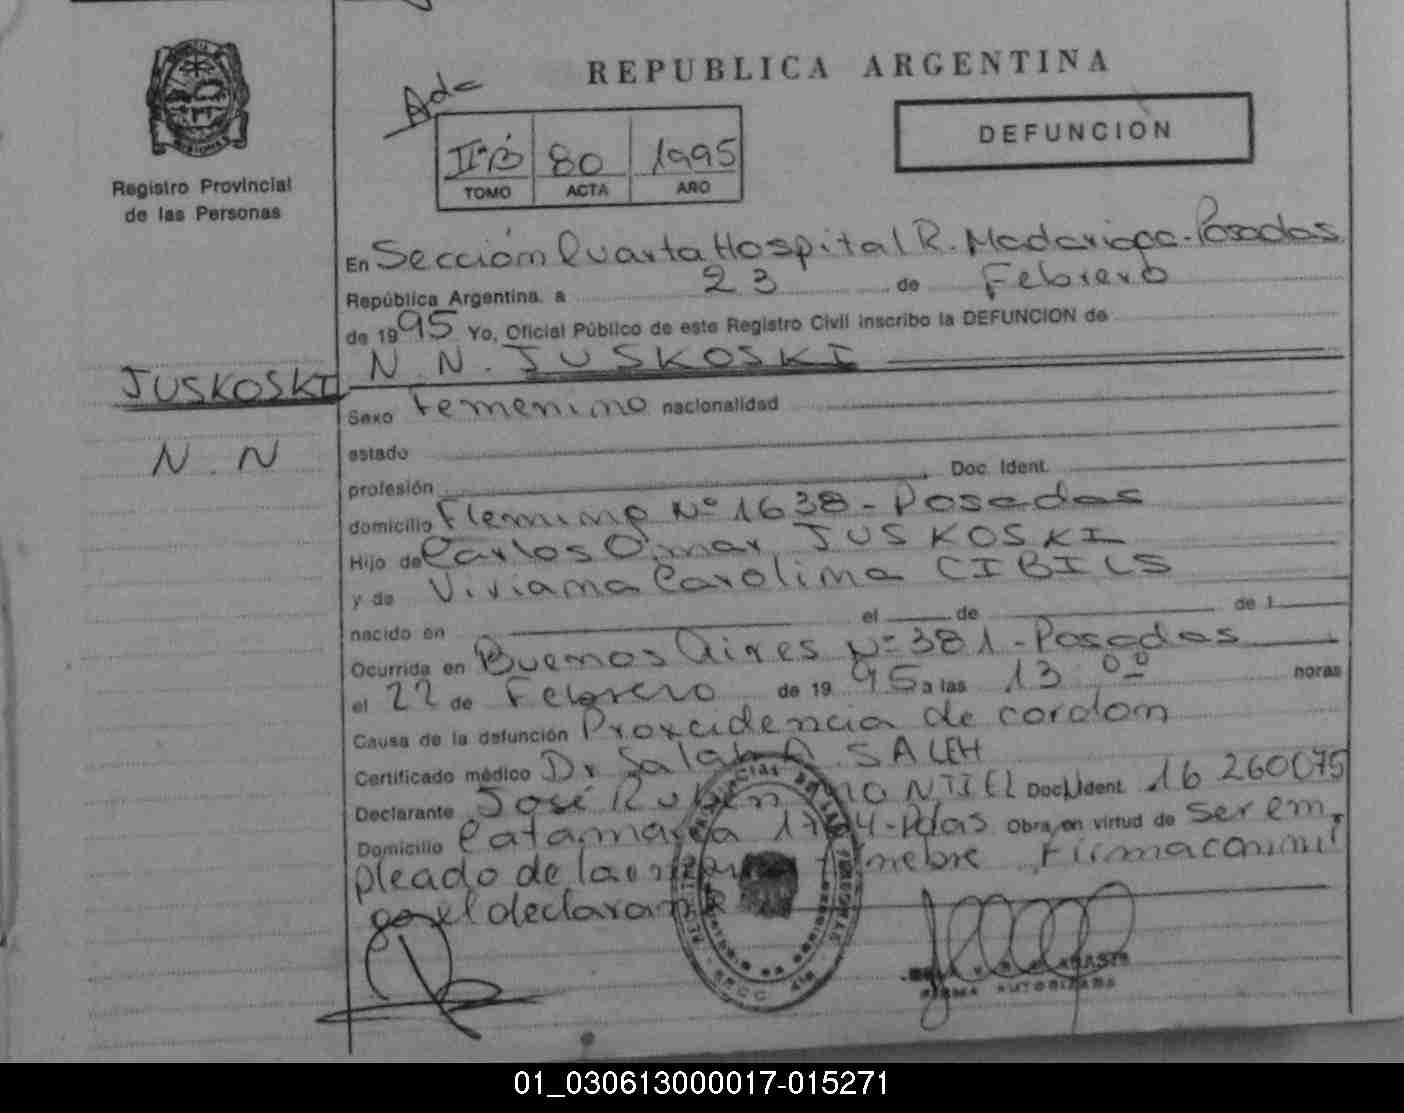 REPUBLICA ARGENTINA
Adc
DEFUNCION
IIºB 80 1995
TOMO ACTA AÑO
Registro Provincial
de las Personas
En Sección Cuarta Hospital R. Madariaga - Posadas
República Argentina. a 23 de Febrero
de 1995 Yo, Oficial Público de este Registro Civil inscribo la DEFUNCION de
N. N. JUSKOSKI
JUSKOSKI
N. N
Sexo Femenino nacionalidad
estado
profesión Doc. Ident.
domicilio Fleming Nº 1638 - Posadas
Hijo de Carlos Omar JUSKOSKI
y de Viviana Carolina CIBILS
nacido en el de de 1
Ocurrida en Buenos Aires Nº 381 - Posadas
el 22 de Febrero de 1995 a las 13 00 horas
Causa de la defunción Proxcidencia de cordon
Certificado médico Dr Salah A. SALEH
Declarante José Ruben MONTIEL Doc. Ident. 16 260075
Domicilio Catamarca 17 4 - Pdas Obra en virtud de ser em
pleado de la fúnebre Firma conmi
go el declarante
FIRMA AUTORIZADA
01_030613000017-015271